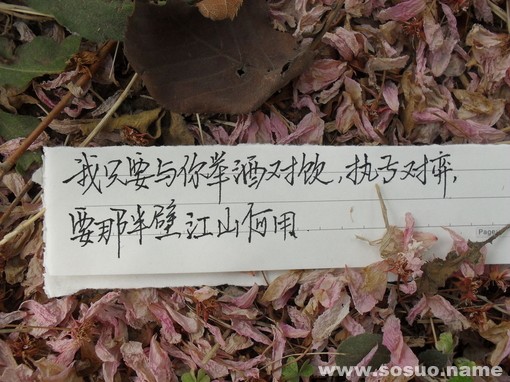 我只要与你举酒对饮，执弓对弈，
要那半壁江山何用
Page:
www.sosuo.name